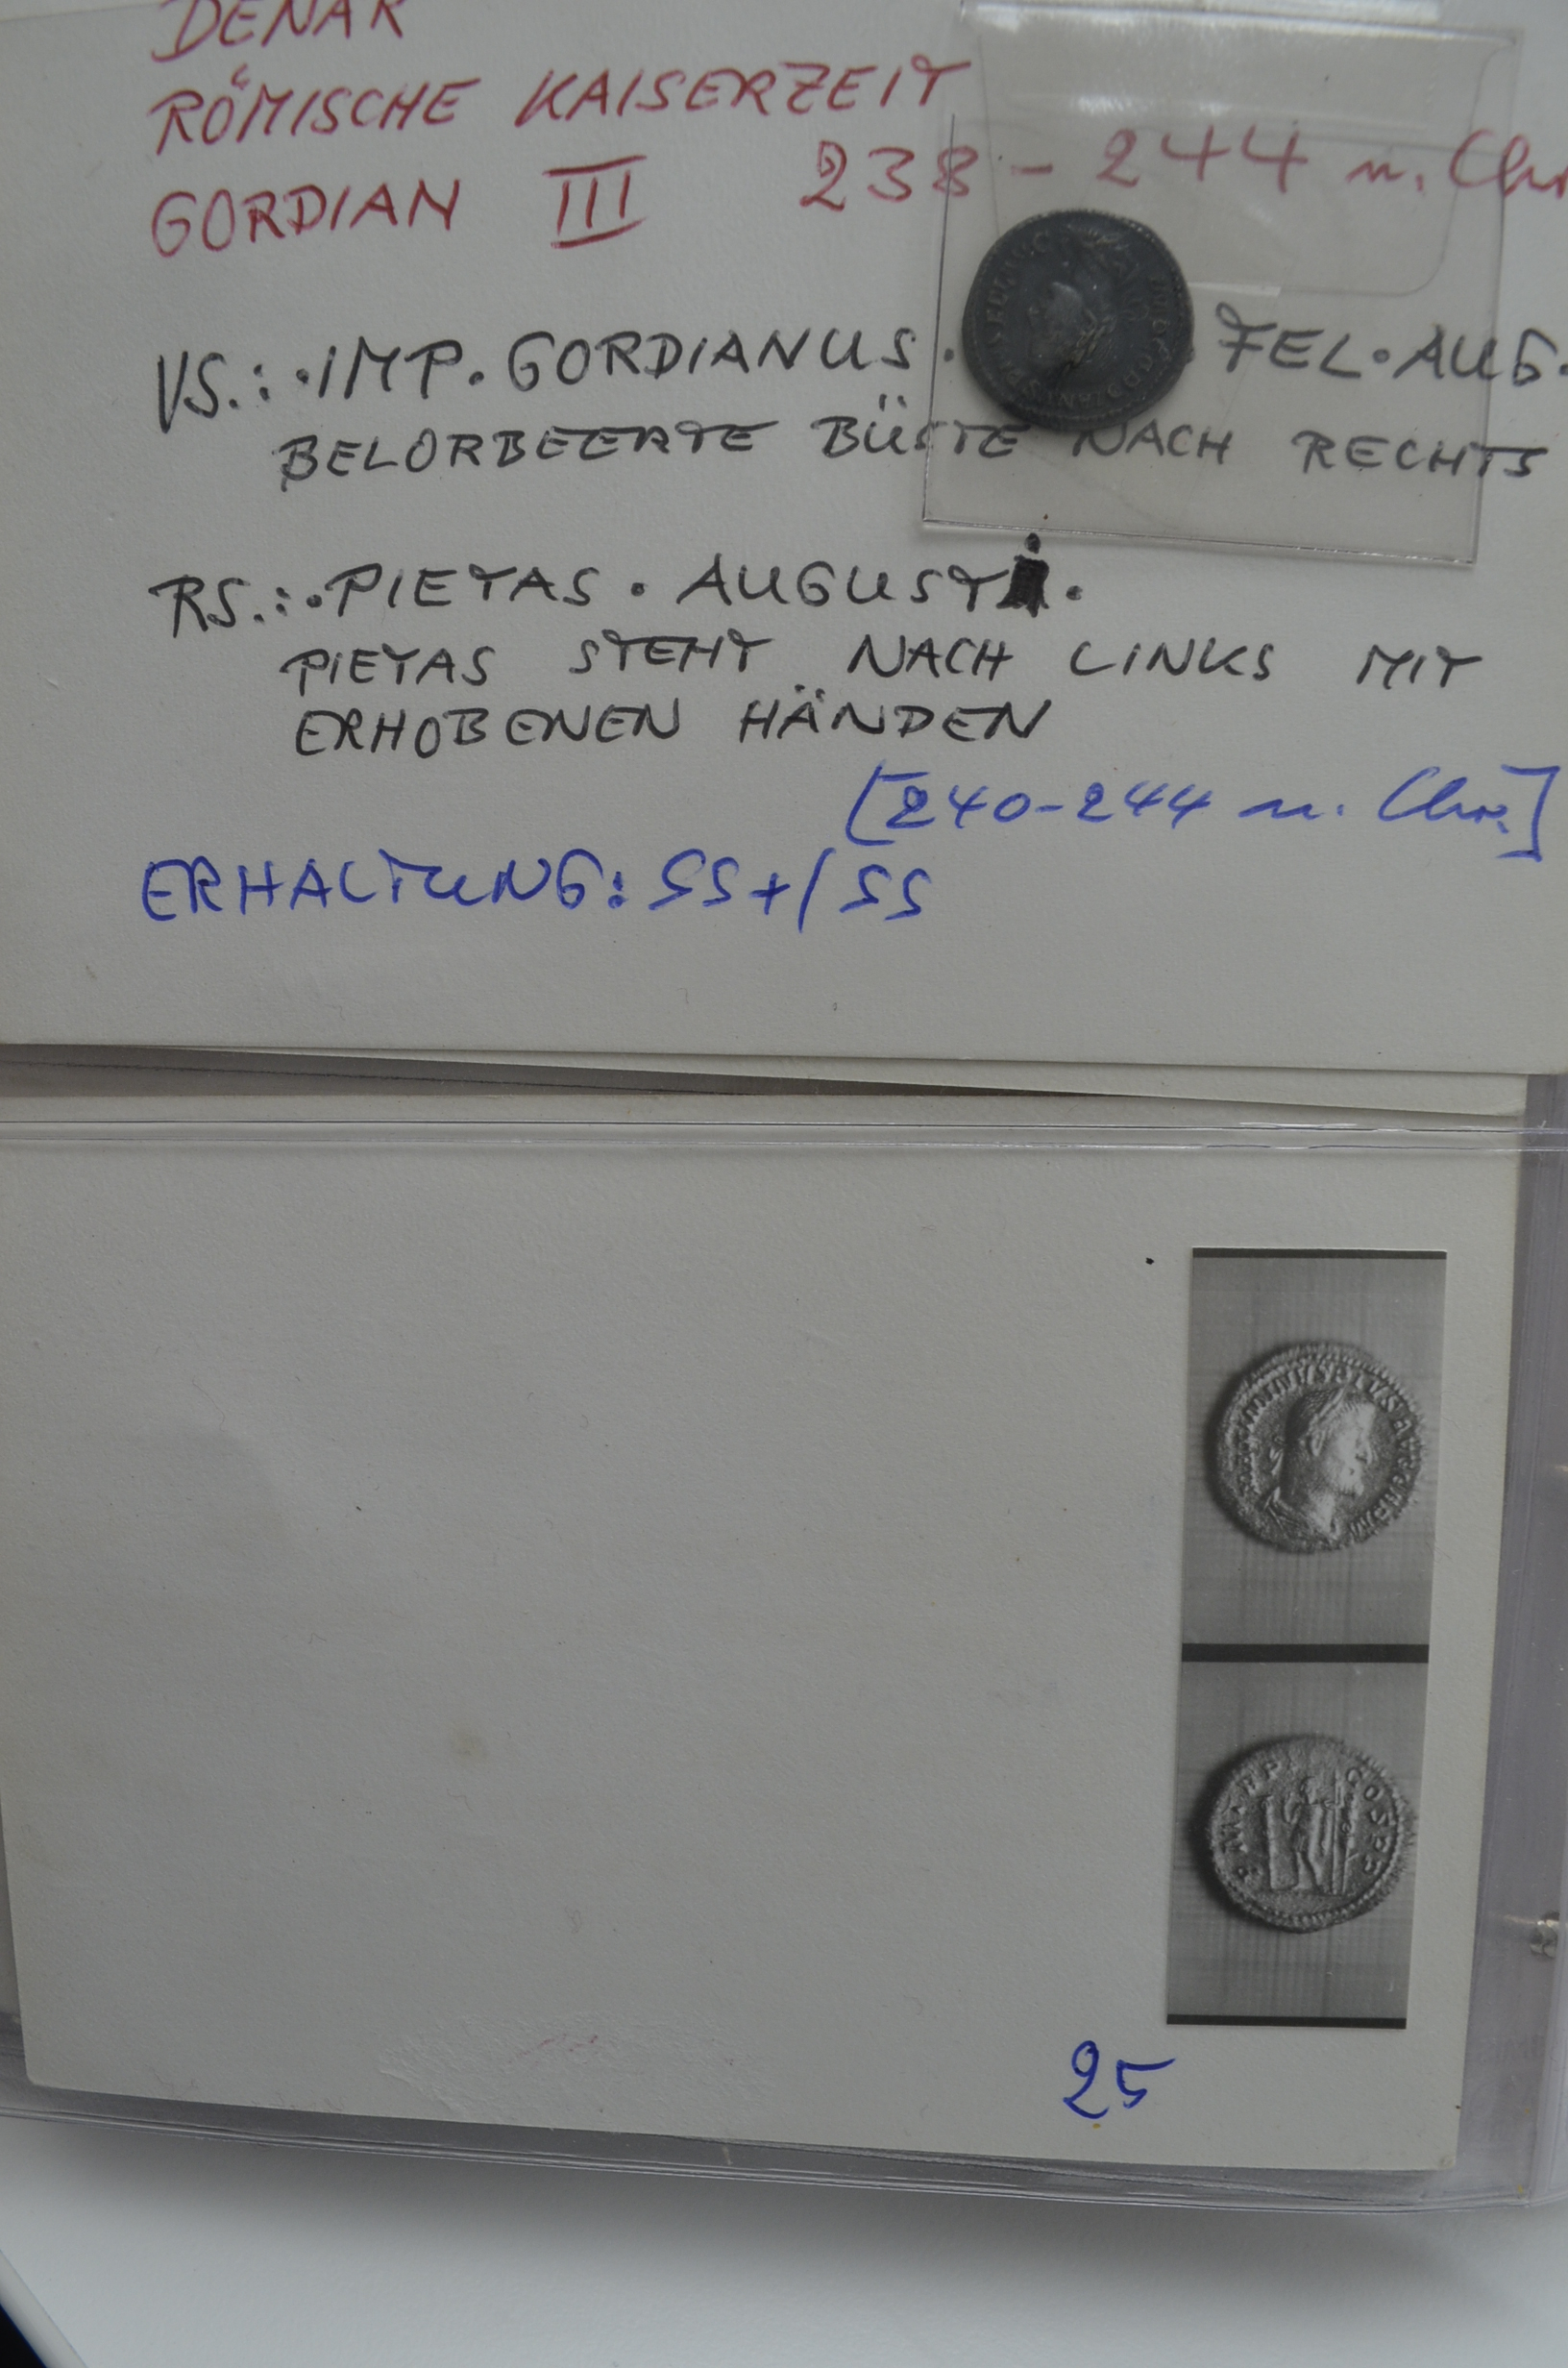 DENAR
RÖMISCHE KAISERZEIT
GORDIAN III 238 - 244 n. Chr
VS.: ·IMP. GORDIANUS · FEL·AUG.
BELORBEERTE BÜSTE NACH RECHTS
RS.: ·PIETAS · AUGUSTI·
PIETAS STEHT NACH LINKS MIT
ERHOBENEN HÄNDEN
[240-244 n. Chr.]
ERHALTUNG: SS+/SS
25